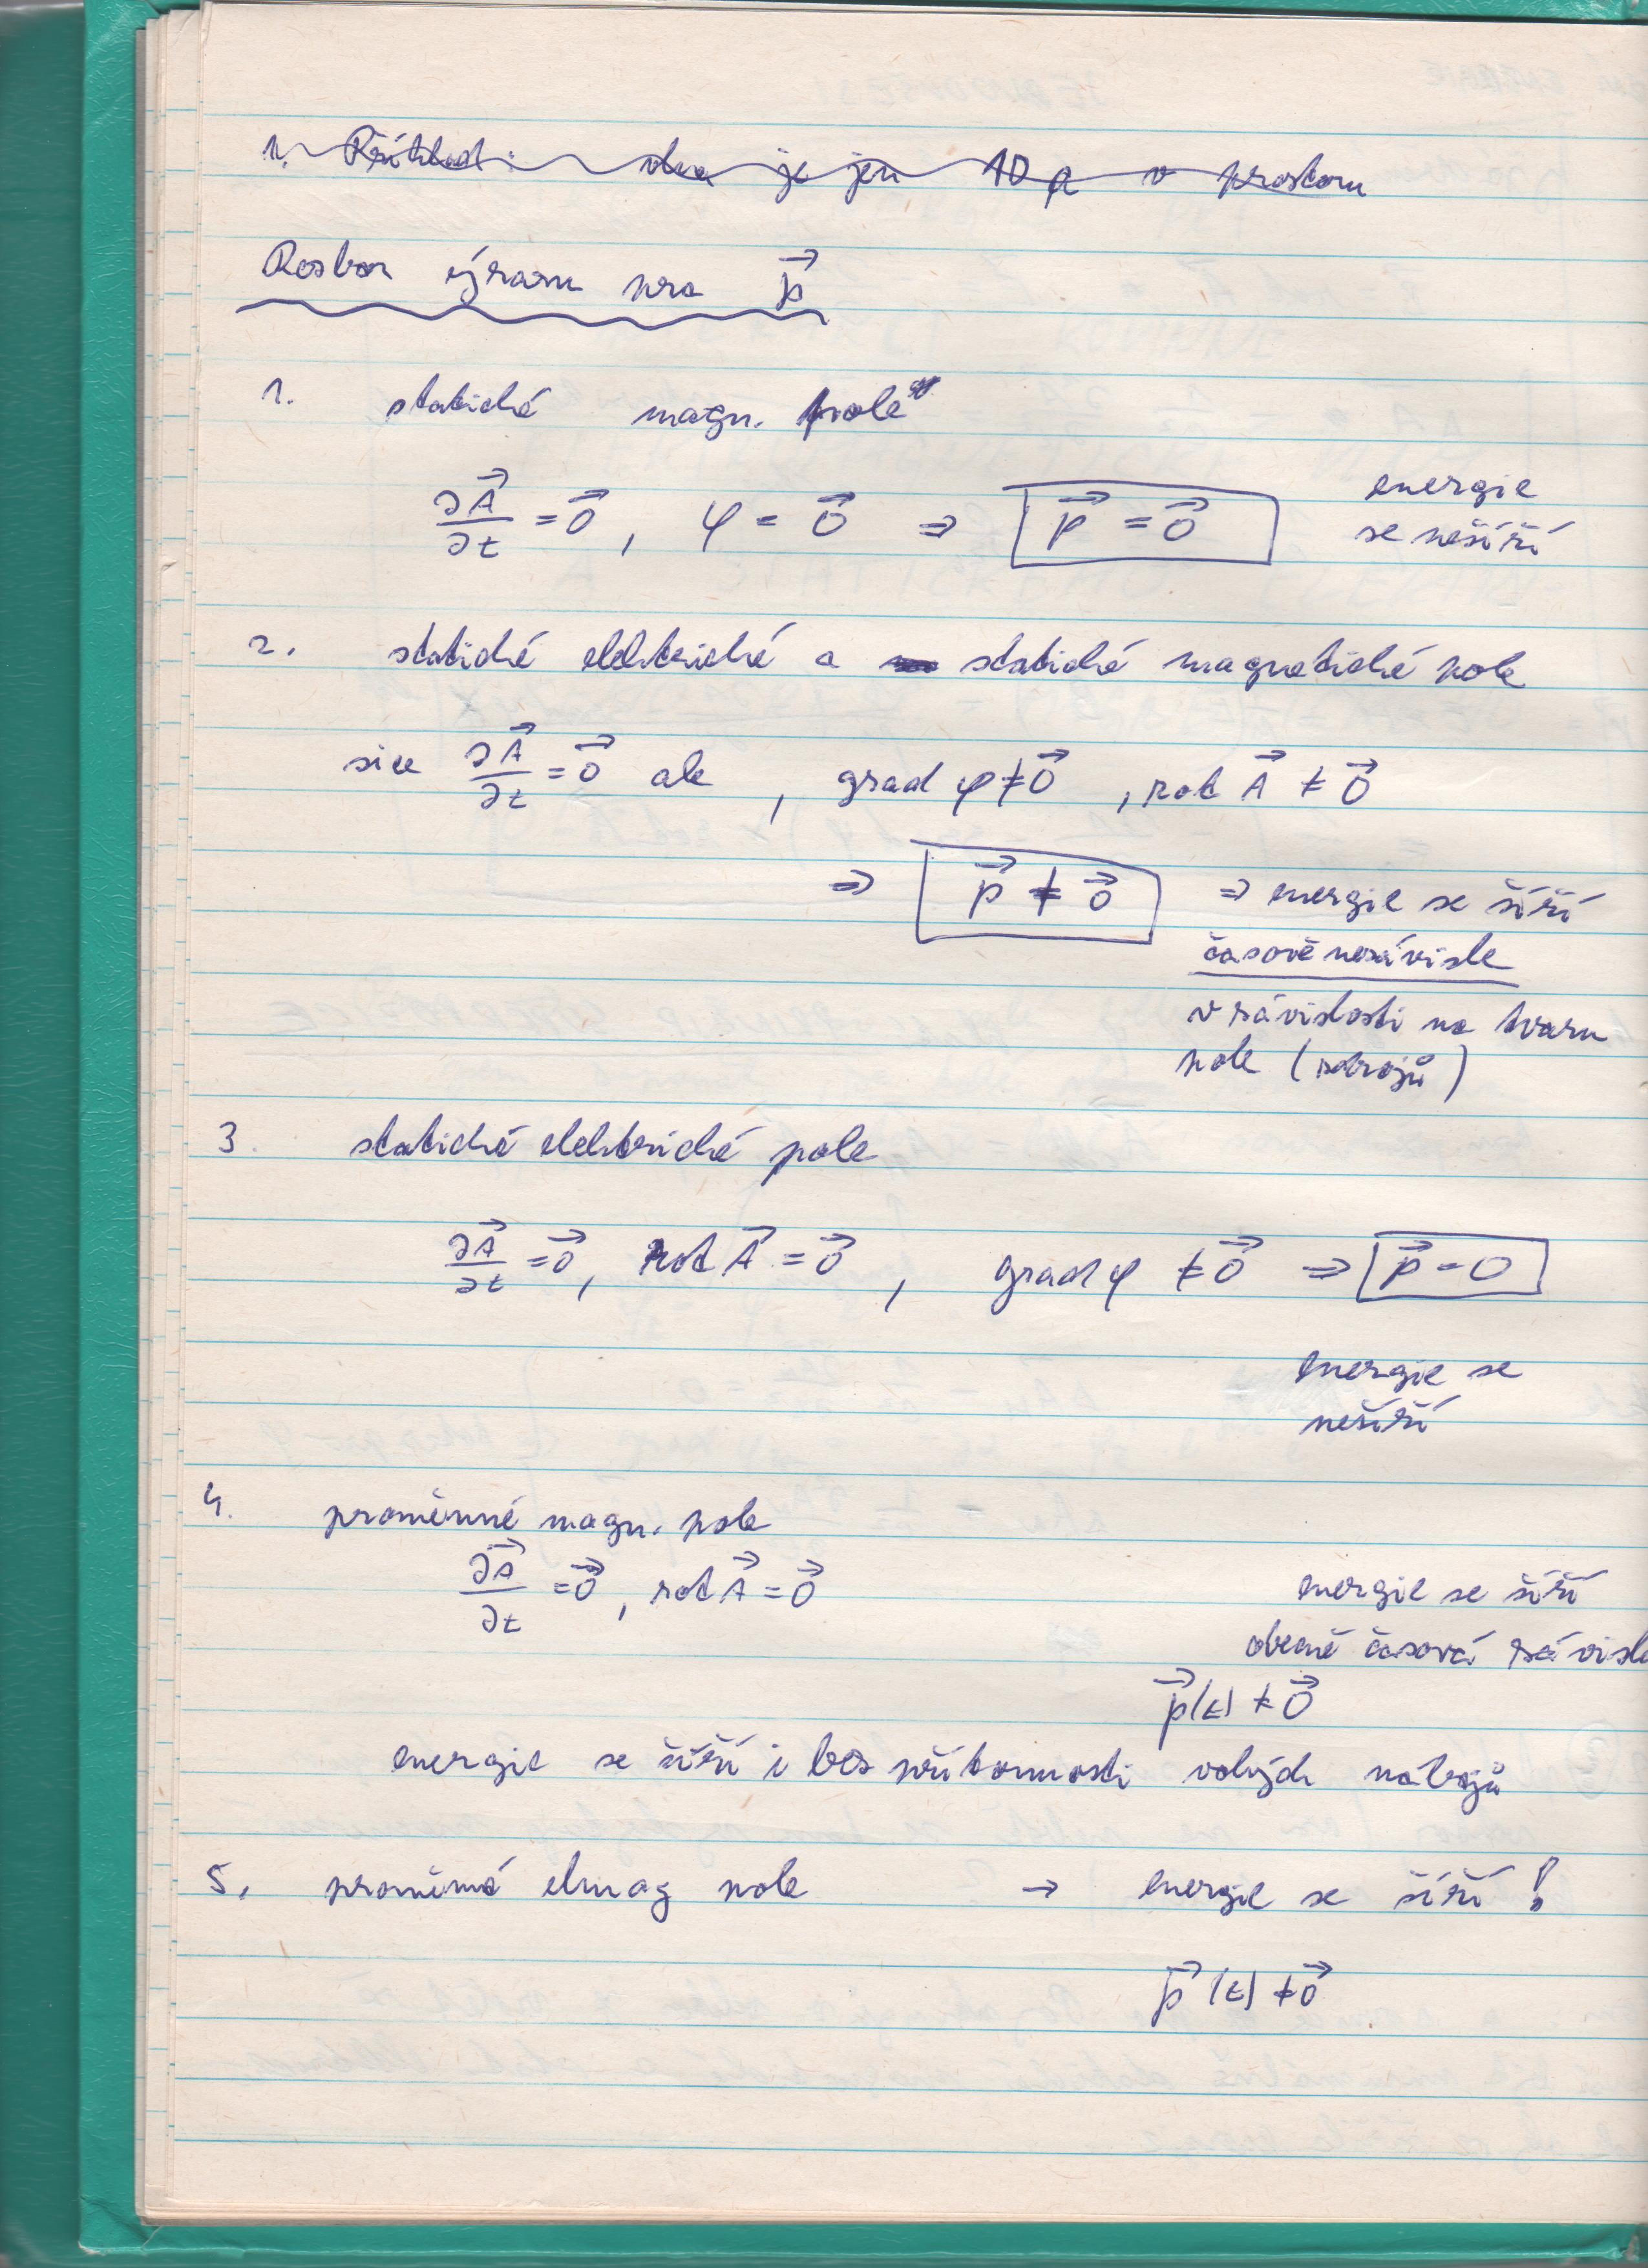 1. Příklad: vlna je jen 1D a v prostoru
Rozbor výrazu pro p⃗
1. statické magn. pole
∂A⃗/∂t = 0⃗ , φ = 0⃗ ⇒ p⃗ = 0⃗ energie
se nešíří
2. statické elektrické a statické magnetické pole
sice ∂A⃗/∂t = 0⃗ ale , grad φ ≠ 0⃗ , rot A⃗ ≠ 0⃗
⇒ p⃗ ≠ 0⃗ ⇒ energie se šíří
časově nezávisle
v závislosti na tvaru
pole (zdrojů)
3. statické elektrické pole
∂A⃗/∂t = 0⃗, rot A⃗ = 0⃗ , grad φ ≠ 0⃗ ⇒ p⃗ = 0
energie se
nešíří
4. proměnné magn. pole
∂A⃗/∂t = 0⃗ , rot A⃗ = 0⃗ energie se šíří
obecně časová závisle
p⃗(t) ≠ 0⃗
energie se šíří i bez přítomnosti volných nábojů
5. proměnná elmag pole → energie se šíří !
p⃗ (t) ≠ 0⃗